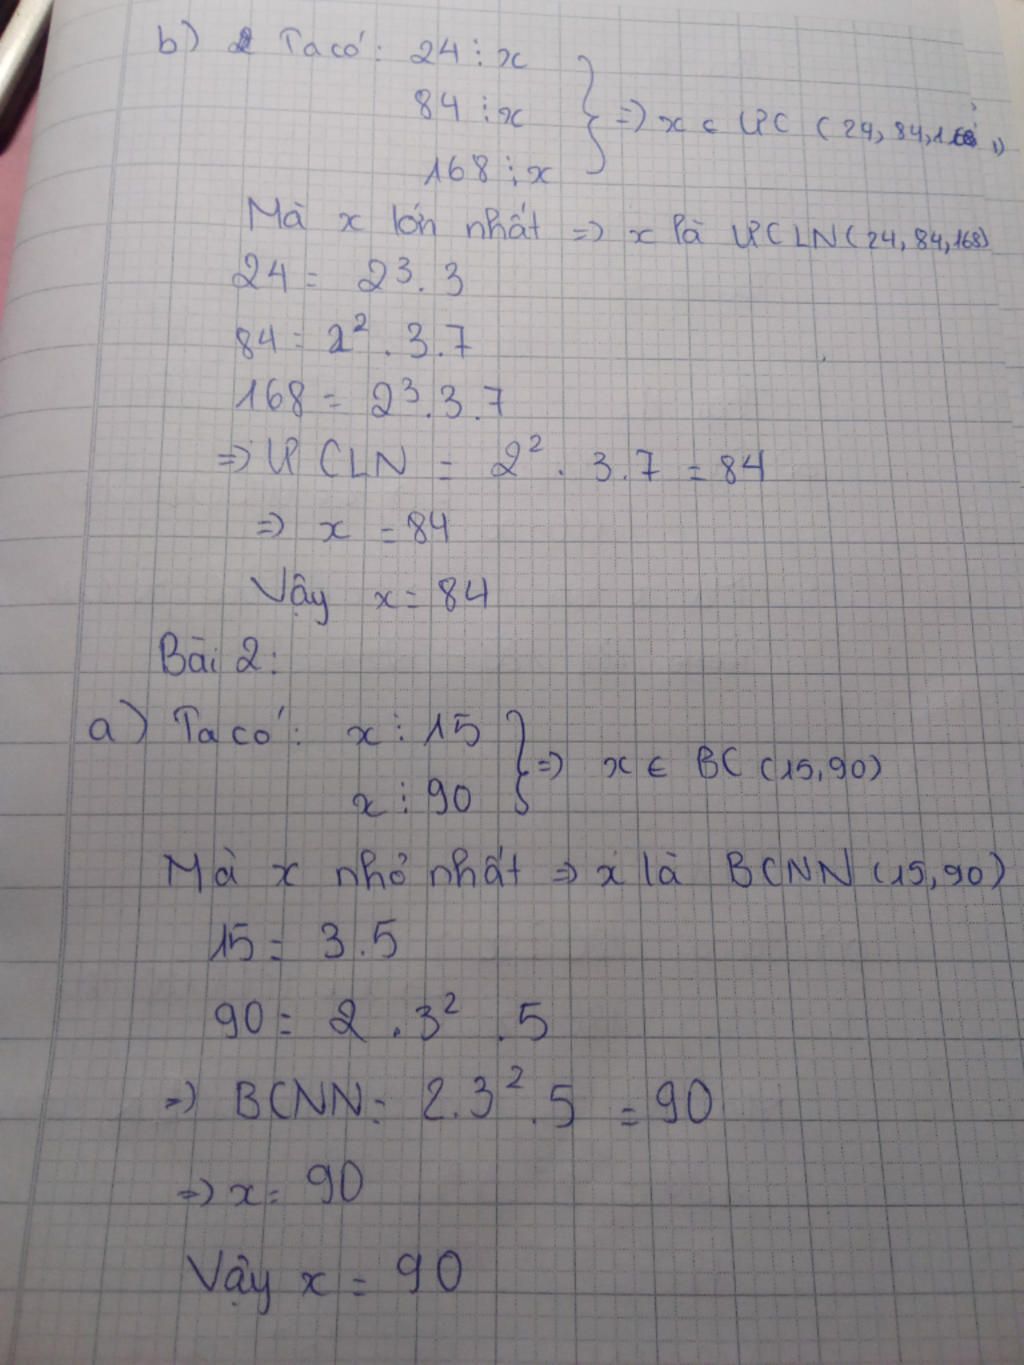 b) Ta có: 24 ⋮ x
84 ⋮ x
168 ⋮ x
⇒ x ∈ ƯC (24, 84, 168)
Mà x lớn nhất ⇒ x là ƯCLN (24, 84, 168)
24 = 2³.3
84 = 2².3.7
168 = 2³.3.7
⇒ ƯCLN = 2².3.7 = 84
⇒ x = 84
Vậy x = 84
Bài 2:
a) Ta có: x ⋮ 15
x ⋮ 90
⇒ x ∈ BC (15,90)
Mà x nhỏ nhất ⇒ x là BCNN (15,90)
15 = 3.5
90 = 2.3².5
⇒ BCNN = 2.3².5 = 90
⇒ x = 90
Vậy x = 90